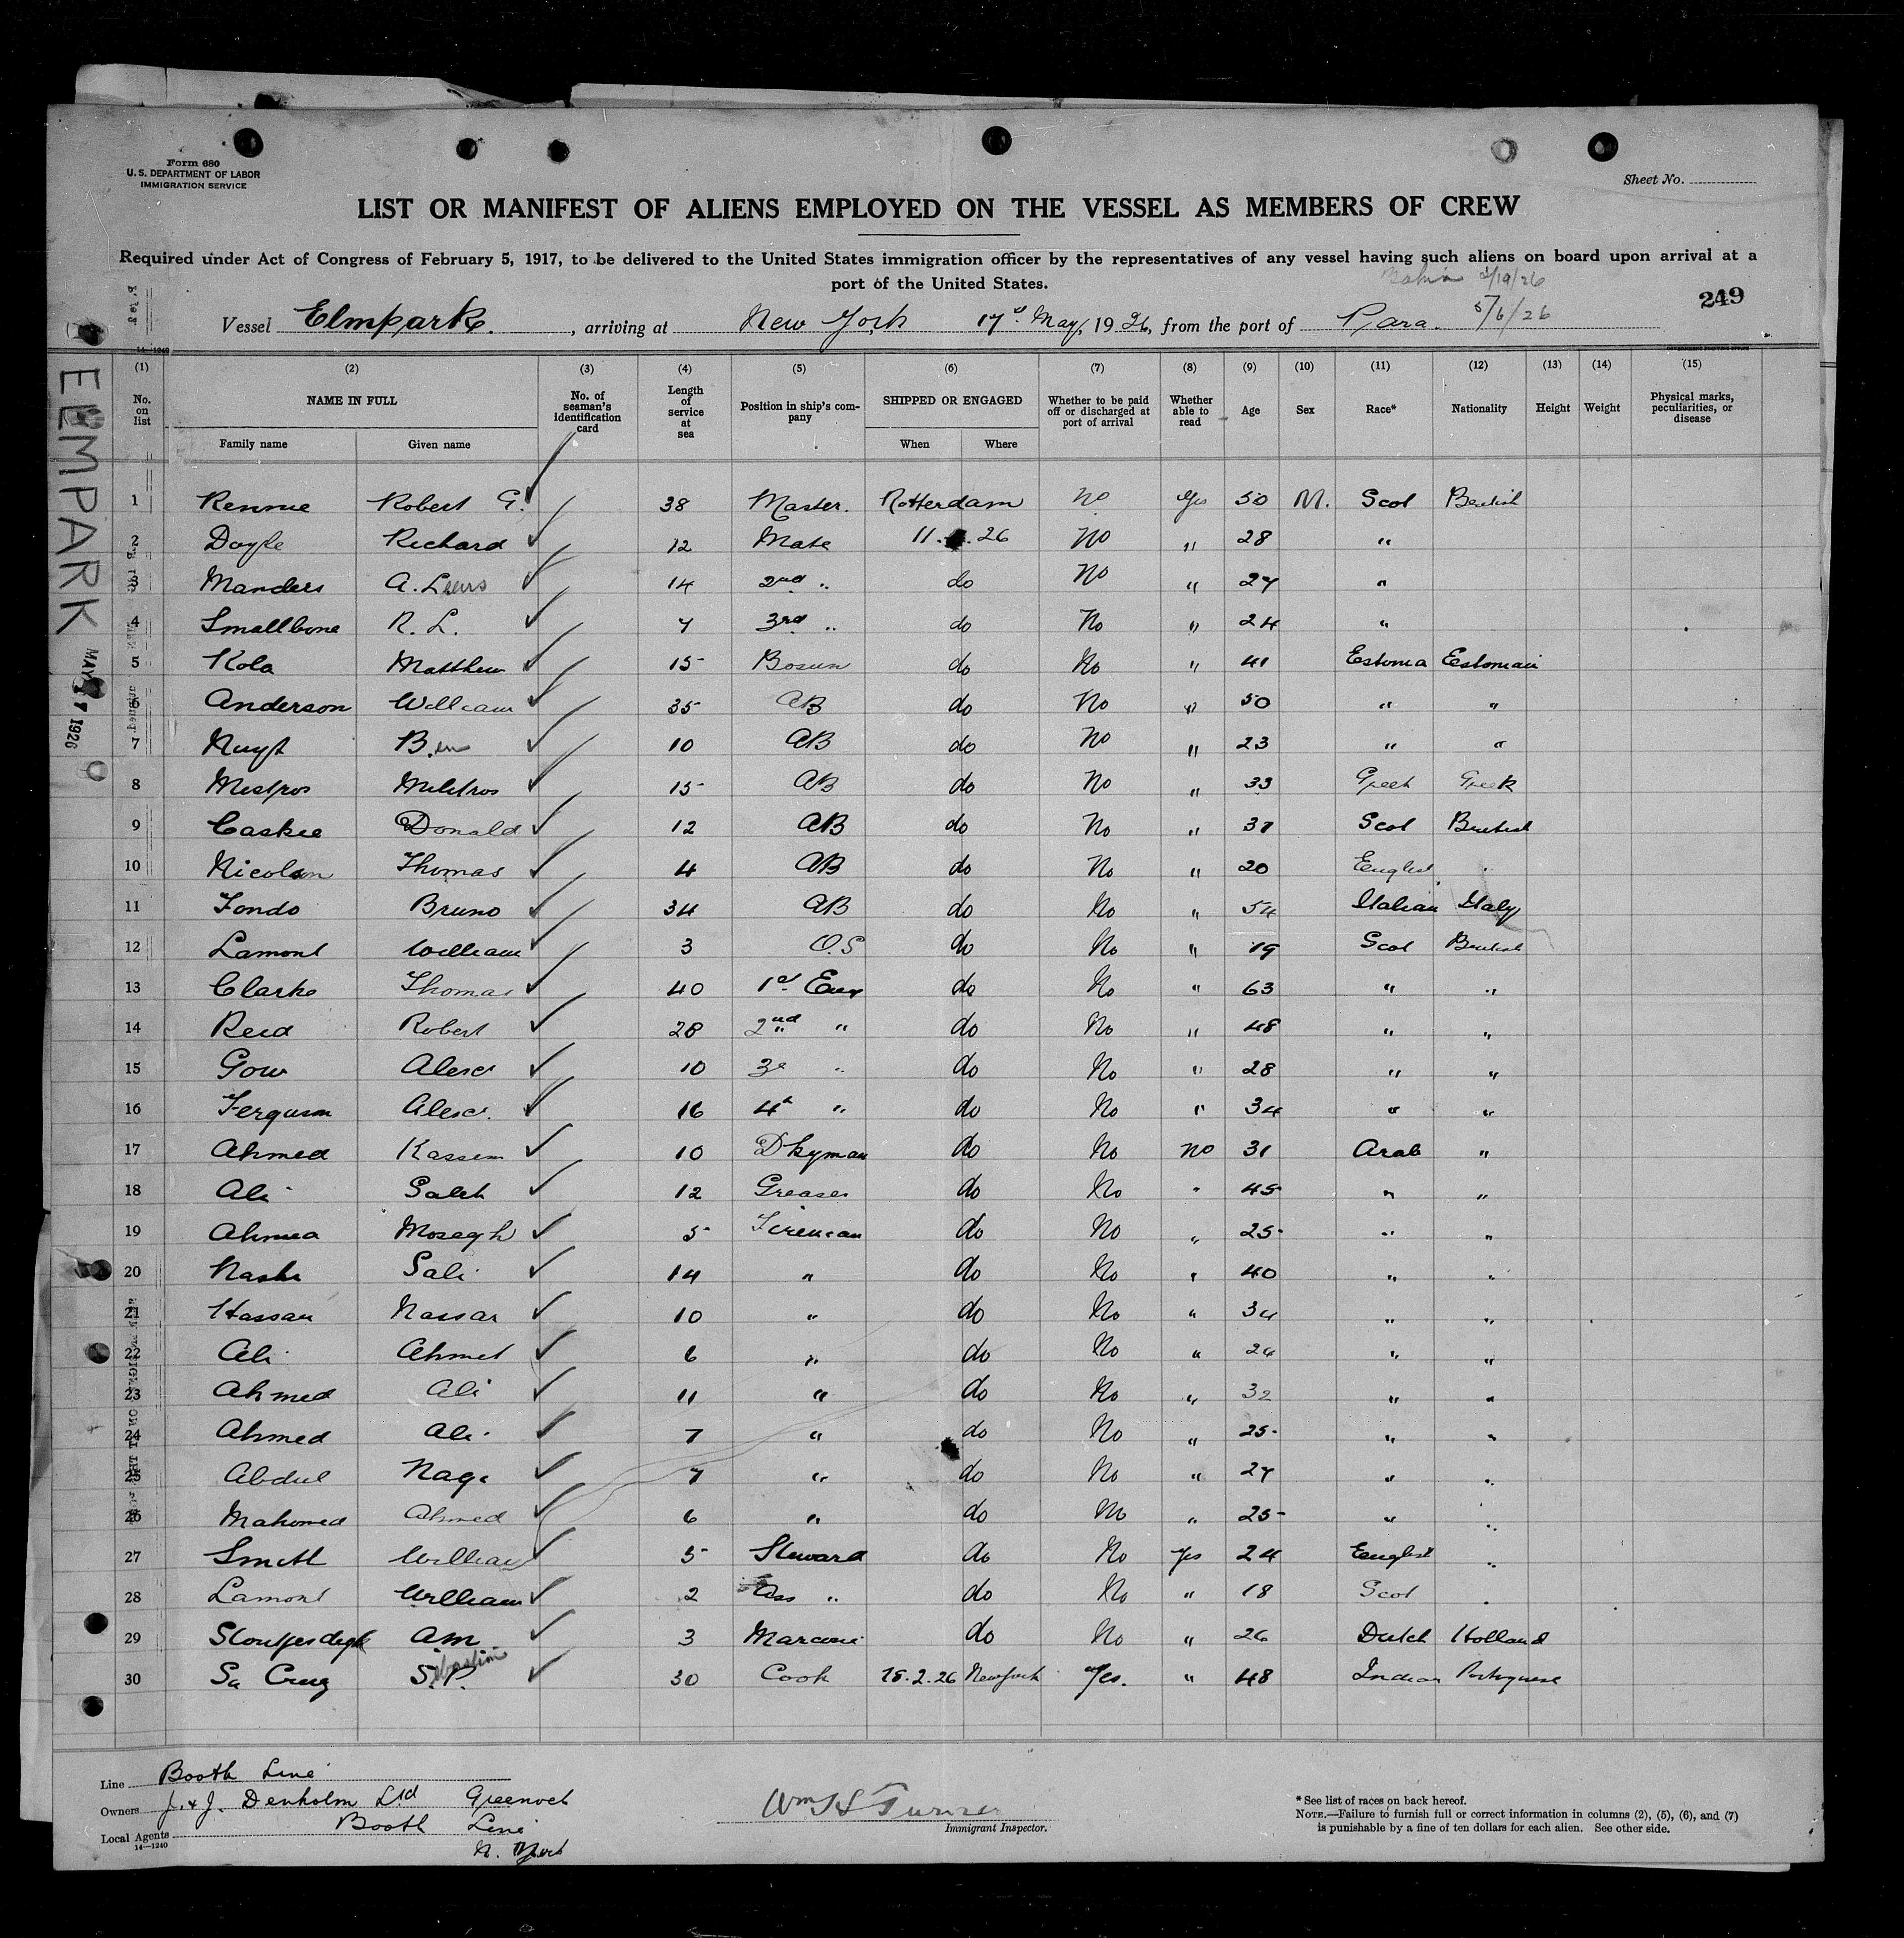 Form 680
U. S. DEPARTMENT OF LABOR
IMMIGRATION SERVICE
Sheet No.
LIST OR MANIFEST OF ALIENS EMPLOYED ON THE VESSEL AS MEMBERS OF CREW
Required under Act of Congress of February 5, 1917, to be delivered to the United States immigration officer by the representatives of any vessel having such aliens on board upon arrival at a
port of the United States.
249
Vessel Elmpark, arriving at New York 17 May, 1926, from the port of Para 5/6/26
ELMPARK
MAY 1926
(1) (2) (3) (4) (5) (6) (7) (8) (9) (10) (11) (12) (13) (14) (15)
No. on list NAME IN FULL Family name Given name No. of seaman's identification card Length of service at sea Position in ship's company SHIPPED OR ENGAGED When Where Whether to be paid off or discharged at port of arrival Whether able to read Age Sex Race* Nationality Height Weight Physical marks, peculiarities, or disease
1 Rennie Robert G. 38 Master. Rotterdam No Yes 50 M. Scot British
2 Doyle Richard 12 Mate 11. 26 No " 28 "
3 Manders A. Lewis 14 2nd " do No " 27 "
4 Smallbone R. L. 7 3rd " do No " 24 "
5 Kola Matthew 15 Bosun do No " 41 Estonia Estonian
6 Anderson William 35 AB do No " 50 " "
7 Nuyt Ben 10 AB do No " 23 " "
8 15 AB do No " 33 Greek Greek
9 Caskie Donald 12 AB do No " 37 Scot British
10 Nicolson Thomas 4 AB do No " 20 English "
11 Fondo Bruno 34 AB do No " 54 Italian Italy
12 Lamont William 3 O.S do No " 19 Scot British
13 Clarke Thomas 40 1st Eng do No " 63 " "
14 Reid Robert 28 2nd " do No " 48 " "
15 Gow Alexr 10 3d " do No " 28 " "
16 Ferguson Alexr. 16 4th " do No " 34 " "
17 Ahmed Kassem 10 Dkyman do No No 31 Arab "
18 Ali Saleh 12 Greaser do No " 45 " "
19 Ahmed Mosagh 5 Fireman do No " 25 " "
20 Nashi Sali 14 " do No " 40 " "
21 Hassan Nassar 10 " do No " 34 " "
22 Ali Ahmet 6 " do No " 24 " "
23 Ahmed Ali 11 " do No " 32 " "
24 Ahmed Ali 7 " do No " 25 " "
25 Abdul Nagi 7 " do No " 27 " "
26 Mahomed Ahmed 6 " do No " 25 " "
27 Smith William 5 Steward do No Yes 24 English "
28 Lamont William 2 Ass " do No " 18 Scot "
29 A.M. 3 Marconi do No " 26 Dutch Holland
30 Sa Cruz S.P. 30 Cook 15.2.26 New York Yes. " 48 Indian Portuguese
Line Booth Line
Owners J. & J. Denholm Ltd Greenock
Local Agents Booth Line
N. York
14—1240
Wm H Turner
Immigrant Inspector.
* See list of races on back hereof.
NOTE.—Failure to furnish full or correct information in columns (2), (5), (6), and (7)
is punishable by a fine of ten dollars for each alien. See other side.